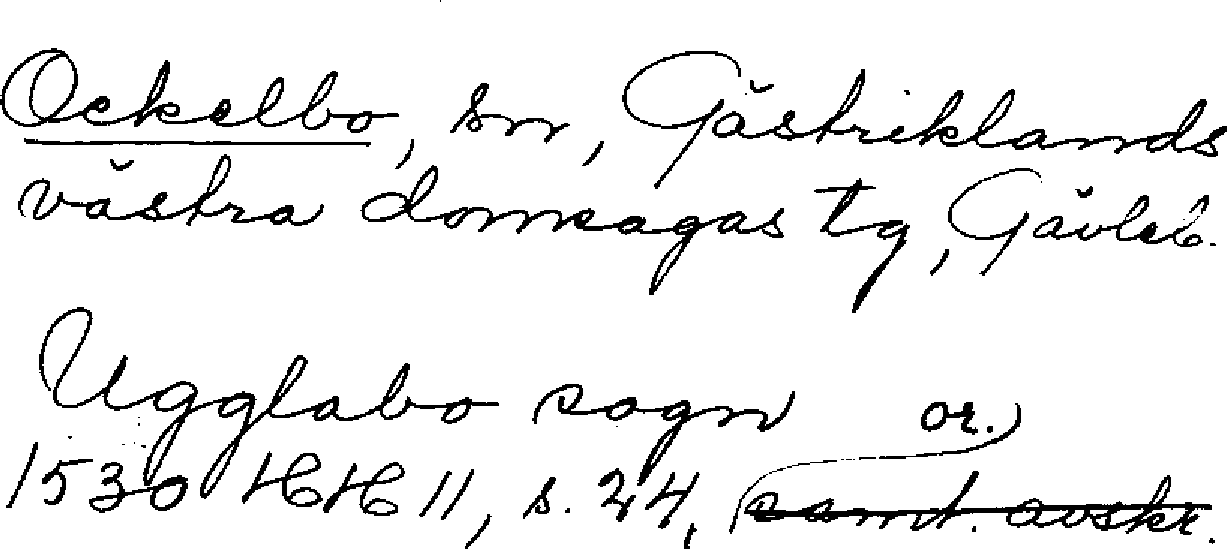 Ockelbo, sn, Gästriklands
västra domsagas tg, Gävleb.
Ugglabo sogn or.
1530 HH 11, s. 24, samt. avskr.